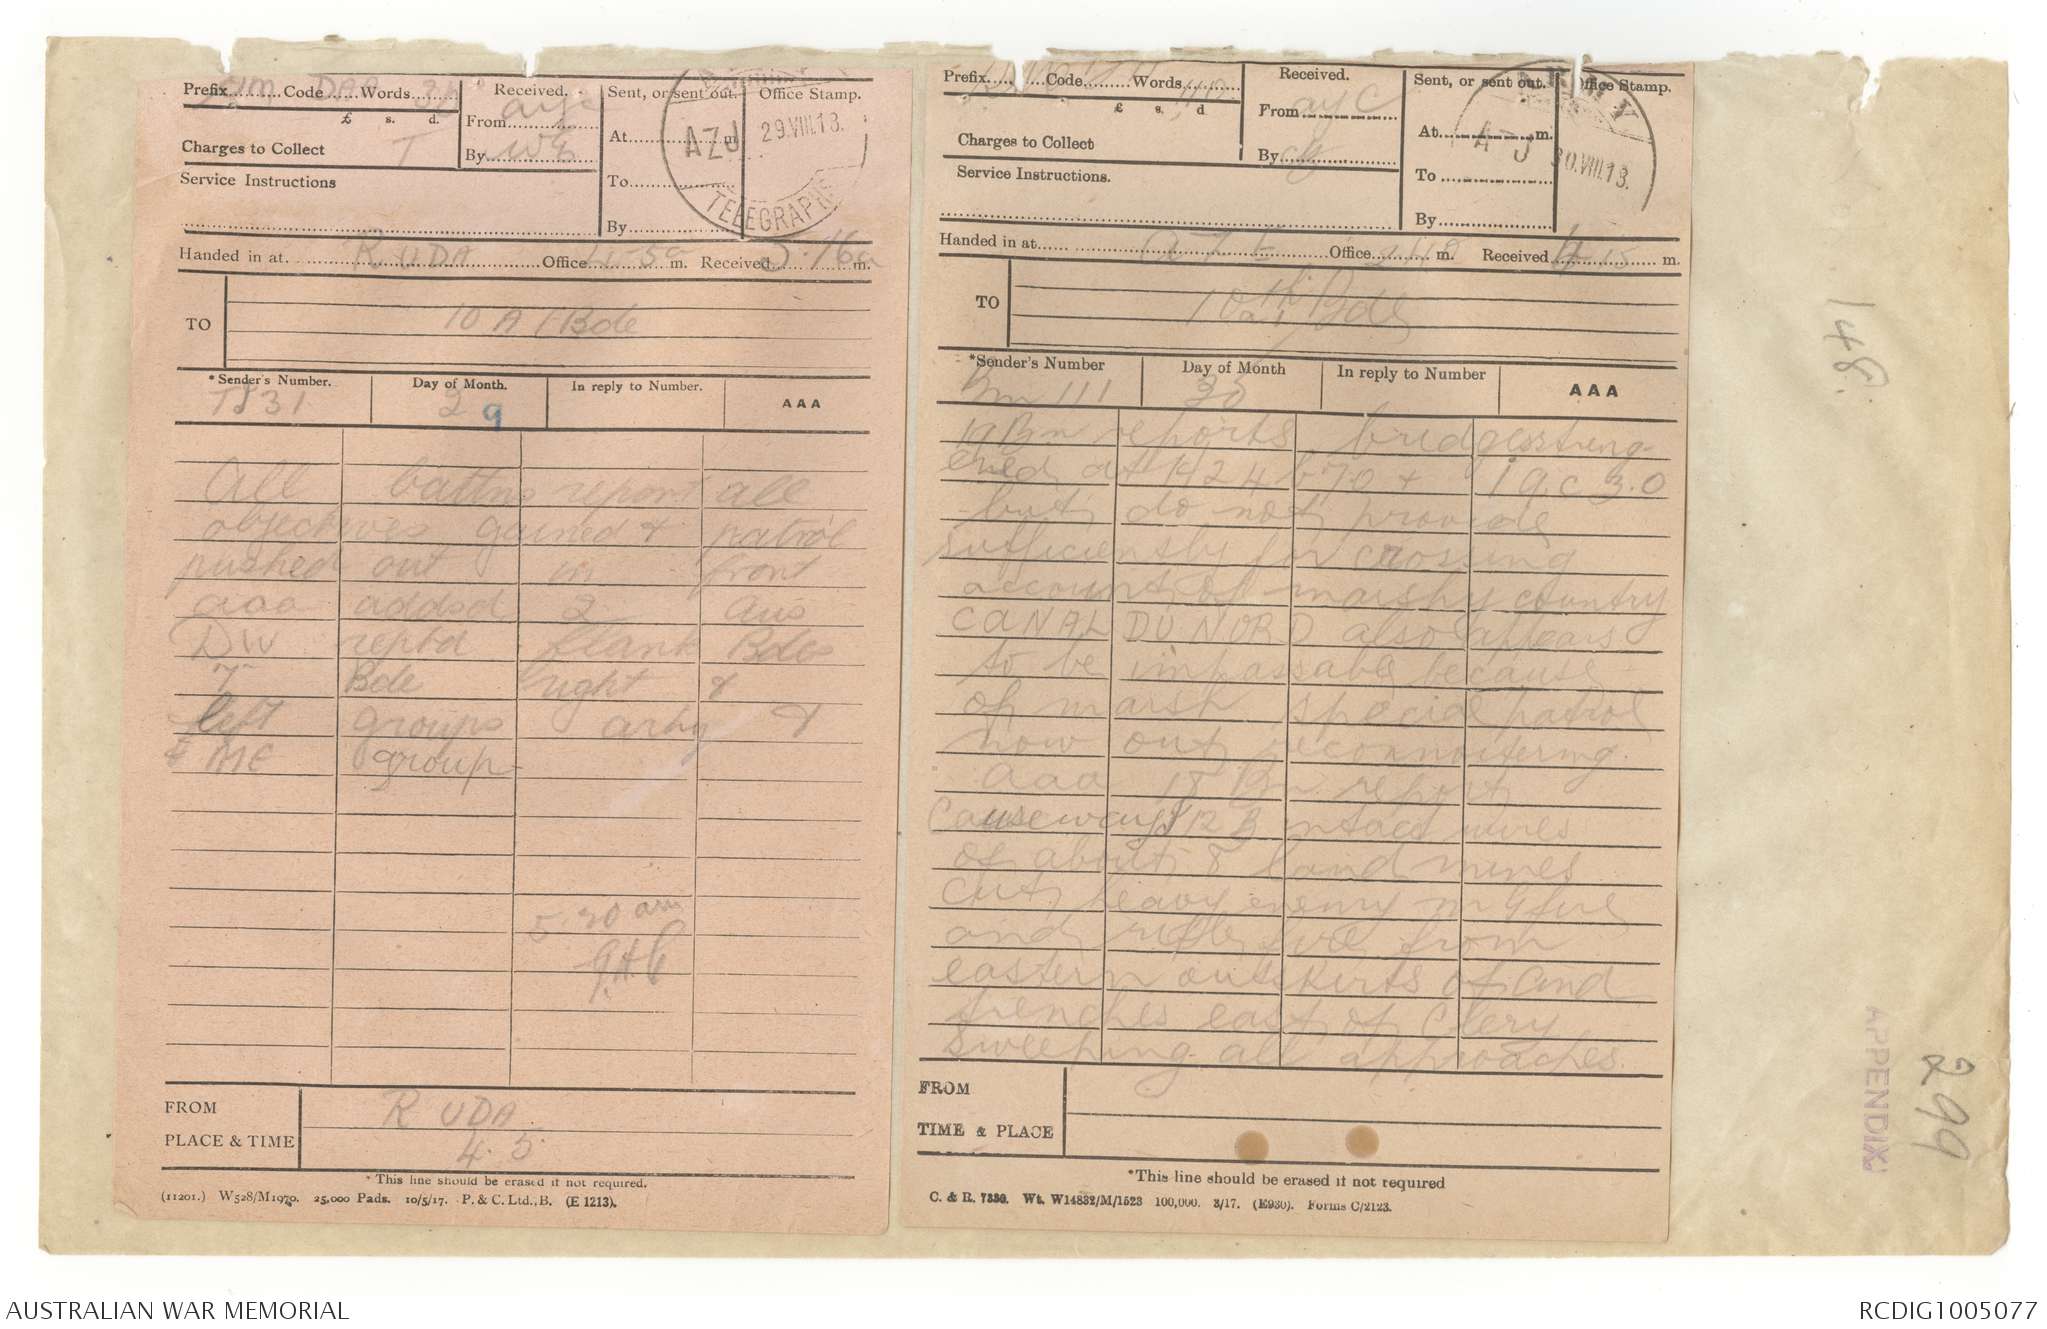 Prefix Sm Code DAR Words 34
£ s. d.
Charges to Collect
T
Received.
From ayc
By WE
Sent, or sent out.
At m.
To
By
Office Stamp.
AZJ 29.VIII.18.
TELEGRAPHS
Service Instructions
Handed in at RUDA Office 4-50 m. Received 5.16a m.
TO 10 A I Bde
*Sender's Number. Day of Month. In reply to Number. AAA
T831 29
All battns report all
objectives gained & patrol
pushed out in front
aaa addsd 2 Aus
Div reptd flank Bdes
7 Bde right &
left groups arty &
& ME group
5.20 am
FROM RUDA
PLACE & TIME 4.5
* This line should be erased if not required.
(11201.) W528/M1970. 25,000 Pads. 10/5/17. P. & C. Ltd., B. (E 1213).
Prefix Code Words
£ s. d
Charges to Collect
Received.
From ayC
By
Sent, or sent out.
At m.
To
By
Office Stamp.
ARMY
A J 30.VIII.18.
Service Instructions.
Handed in at Office m. Received 4 15 m.
TO 10th Bde
*Sender's Number Day of Month In reply to Number AAA
Bm 111 30
19 Bn reports bridges streng-
ened at H24 b 7.0 + I 9.c 3.0
but do not provide
sufficiently for crossing
account of marshy country
CANAL DU NORD also appears
to be impassable because
of marsh special patrol
now out reconnoitering.
aaa 18 Bn report
Causeway intact wires
of about 8 land mines
cut heavy enemy m g fire
and rifle fire from
eastern outskirts of and
trenches east of Clery
Sweeping all approaches.
FROM
TIME & PLACE
*This line should be erased if not required
C. & R. 7330. Wt. W14832/M/1523 100,000. 3/17. (E930). Forms C/2123.
148.
APPENDIX
299
AUSTRALIAN WAR MEMORIAL
RCDIG1005077